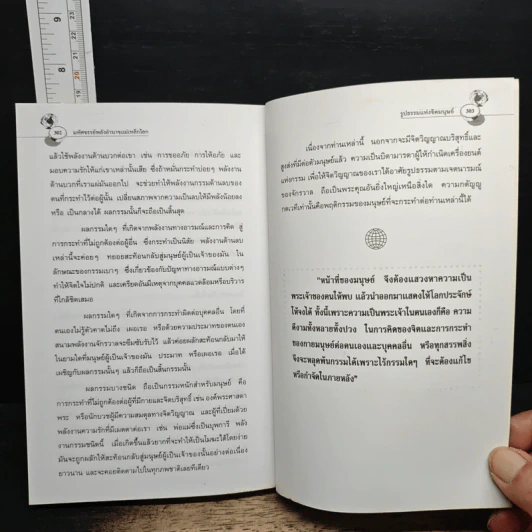 302 มหัศจรรย์พลังอำนาจแม่เหล็กโลก
แล้วใช้พลังงานด้านบวกต่อเขา เช่น การขออภัย การให้อภัย และ
มอบความรักให้แก่เขาเหล่านั้นเสีย ซึ่งถ้าหมั่นกระทำบ่อยๆ พลังงาน
ด้านบวกที่เราแผ่มันออกไป จะช่วยทำให้พลังงานกรรมด้านลบของ
คนที่กระทำไว้ต่อผู้นั้น เปลี่ยนสภาพจากความเป็นลบให้มีพลังน้อยลง
หรือ เป็นกลางได้ ผลกรรมนั้นก็จะถือเป็นสิ้นสุด
ผลกรรมใดๆ ที่เกิดจากพลังงานทางอารมณ์และการคิด สู่
การกระทำที่ไม่ถูกต้องต่อผู้อื่น ซึ่งกระทำเป็นนิสัย พลังงานด้านลบ
เหล่านี้จะค่อยๆ ทยอยสะท้อนกลับสู่มนุษย์ผู้เป็นเจ้าของมัน ใน
ลักษณะของกรรมเบาๆ ซึ่งเกี่ยวข้องกับปัญหาทางอารมณ์แบบต่างๆ
ทำให้จิตใจไม่ปกติ และเครียดอันมีเหตุจากบุคคลแวดล้อมหรือบริวาร
ที่ใกล้ชิดเสมอ
ผลกรรมใดๆ ที่เกิดจากการกระทำผิดต่อบุคคลอื่น โดยที่
ตนเองไม่รู้ตัวคาดไม่ถึง เผอเรอ หรือด้วยความประมาทของตนเอง
สนามพลังงานจักรวาลจะซึมซับรับไว้ แล้วค่อยผลักสะท้อนกลับมาให้
ในยามใดที่มนุษย์ผู้เป็นเจ้าของมัน ประมาท หรือเผอเรอ เมื่อได้
เผชิญกับผลกรรมนั้นๆ แล้วก็ถือเป็นสิ้นกรรมนั้น
ผลกรรมบางชนิด ถือเป็นกรรมหนักสำหรับมนุษย์ คือ
การกระทำที่ไม่ถูกต้องต่อผู้ที่มีกายและจิตบริสุทธิ์ เช่น องค์พระศาสดา
พระ หรือนักบวชผู้มีความสมดุลทางจิตวิญญาณ และผู้ที่เปี่ยมด้วย
พลังงานความรักที่มีเมตตาต่อเรา เช่น พ่อแม่ซึ่งเป็นบุพการี พลัง
งานกรรมชนิดนี้ เมื่อเกิดขึ้นแล้วยากที่จะทำให้เป็นโมฆะได้โดยง่าย
มันจะถูกผลักให้สะท้อนกลับสู่มนุษย์ผู้เป็นเจ้าของนั้นอย่างต่อเนื่อง
ยาวนาน และจะคอยติดตามไปในทุกภพชาติเลยทีเดียว
รูปธรรมแห่งจิตมนุษย์ 303
เนื่องจากท่านเหล่านี้ นอกจากจะมีจิตวิญญาณบริสุทธิ์และ
สูงส่งที่มีต่อตัวมนุษย์แล้ว ความเป็นบิดามารดาผู้ให้กำเนิดเครื่องยนต์
แห่งกรรม เพื่อให้จิตวิญญาณของเราได้อาศัยรูปธรรมตามเจตนารมณ์
ของจักรวาล ถือเป็นพระคุณอันยิ่งใหญ่เหนือสิ่งใด ความกตัญญู
กตเวทีเท่านั้นคือพฤติกรรมของมนุษย์ที่จะกระทำต่อท่านเหล่านี้ได้
"หน้าที่ของมนุษย์ จึงต้องแสวงหาความเป็น
พระเจ้าของตนให้พบ แล้วนำออกมาแสดงให้โลกประจักษ์
ให้จงได้ ทั้งนี้เพราะความเป็นพระเจ้าในตนเองก็คือ ความ
ดีงามทั้งหลายทั้งปวง ในการคิดของจิตและการกระทำ
ของกายมนุษย์ต่อตนเองและบุคคลอื่น หรือทุกสรรพสิ่ง
จึงจะหลุดพ้นกรรมได้เพราะไร้กรรมใดๆ ที่จะต้องแก้ไข
หรือกำจัดในภายหลัง"
8
9
20
21